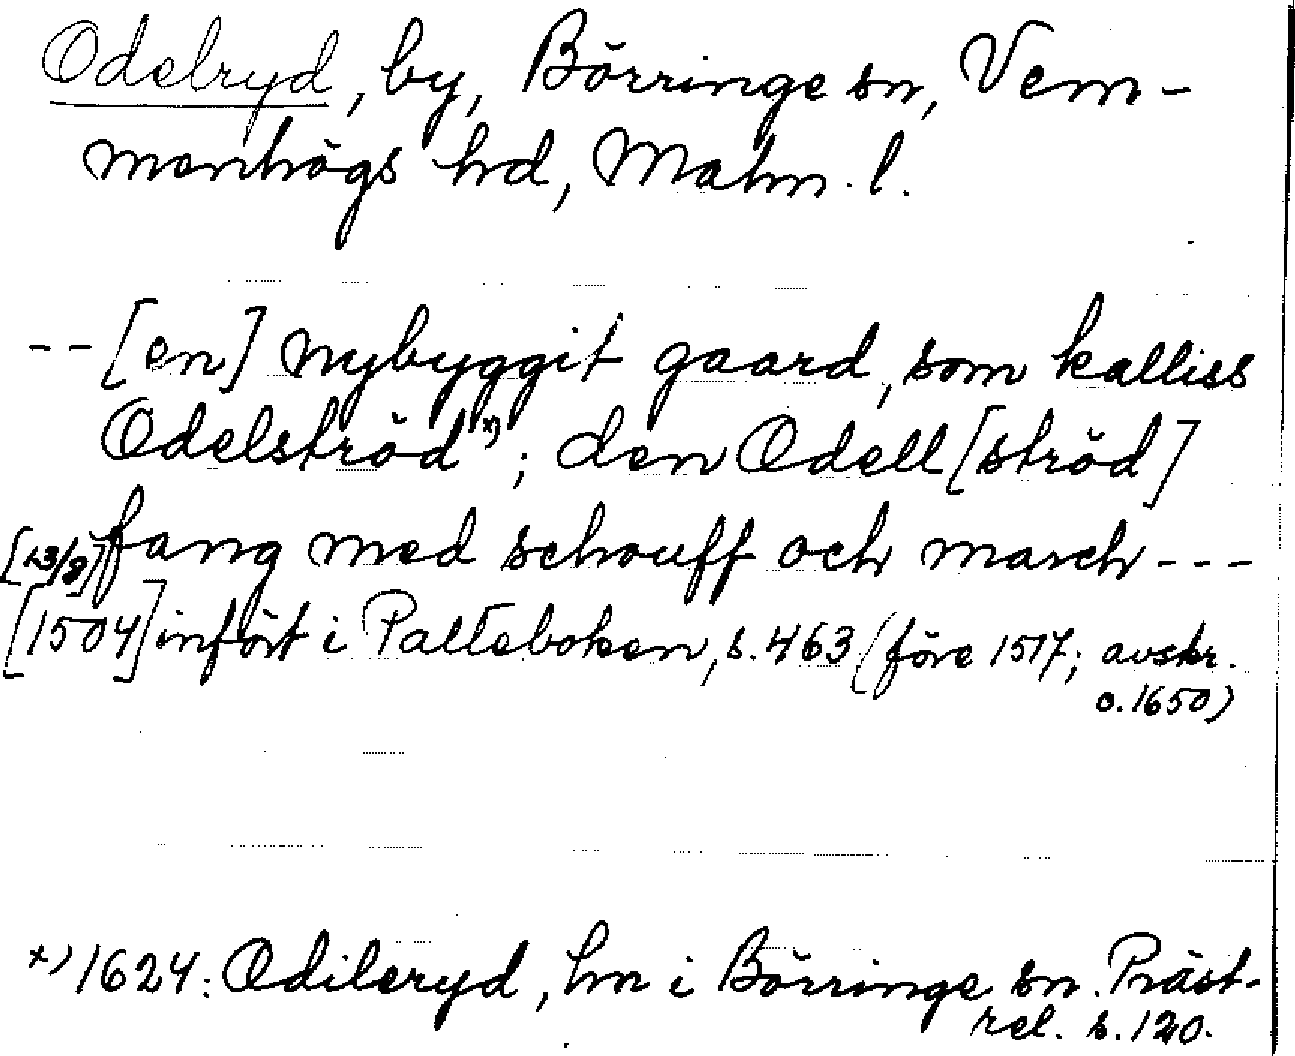 Odelryd, by, Börringe sn, Vem-
menhögs hrd, Malm. l.
-- [en] nybyggit gaard, som kalliss
Odelströd *); den Odell[ströd]
[23/8] fang med schouff och march ---
[1504] infört i Palteboken, s. 463 (före 1517; avskr.
o. 1650)
*) 1624: Odileryd, hn i Börringe sn. Präst-
rel. s. 120.